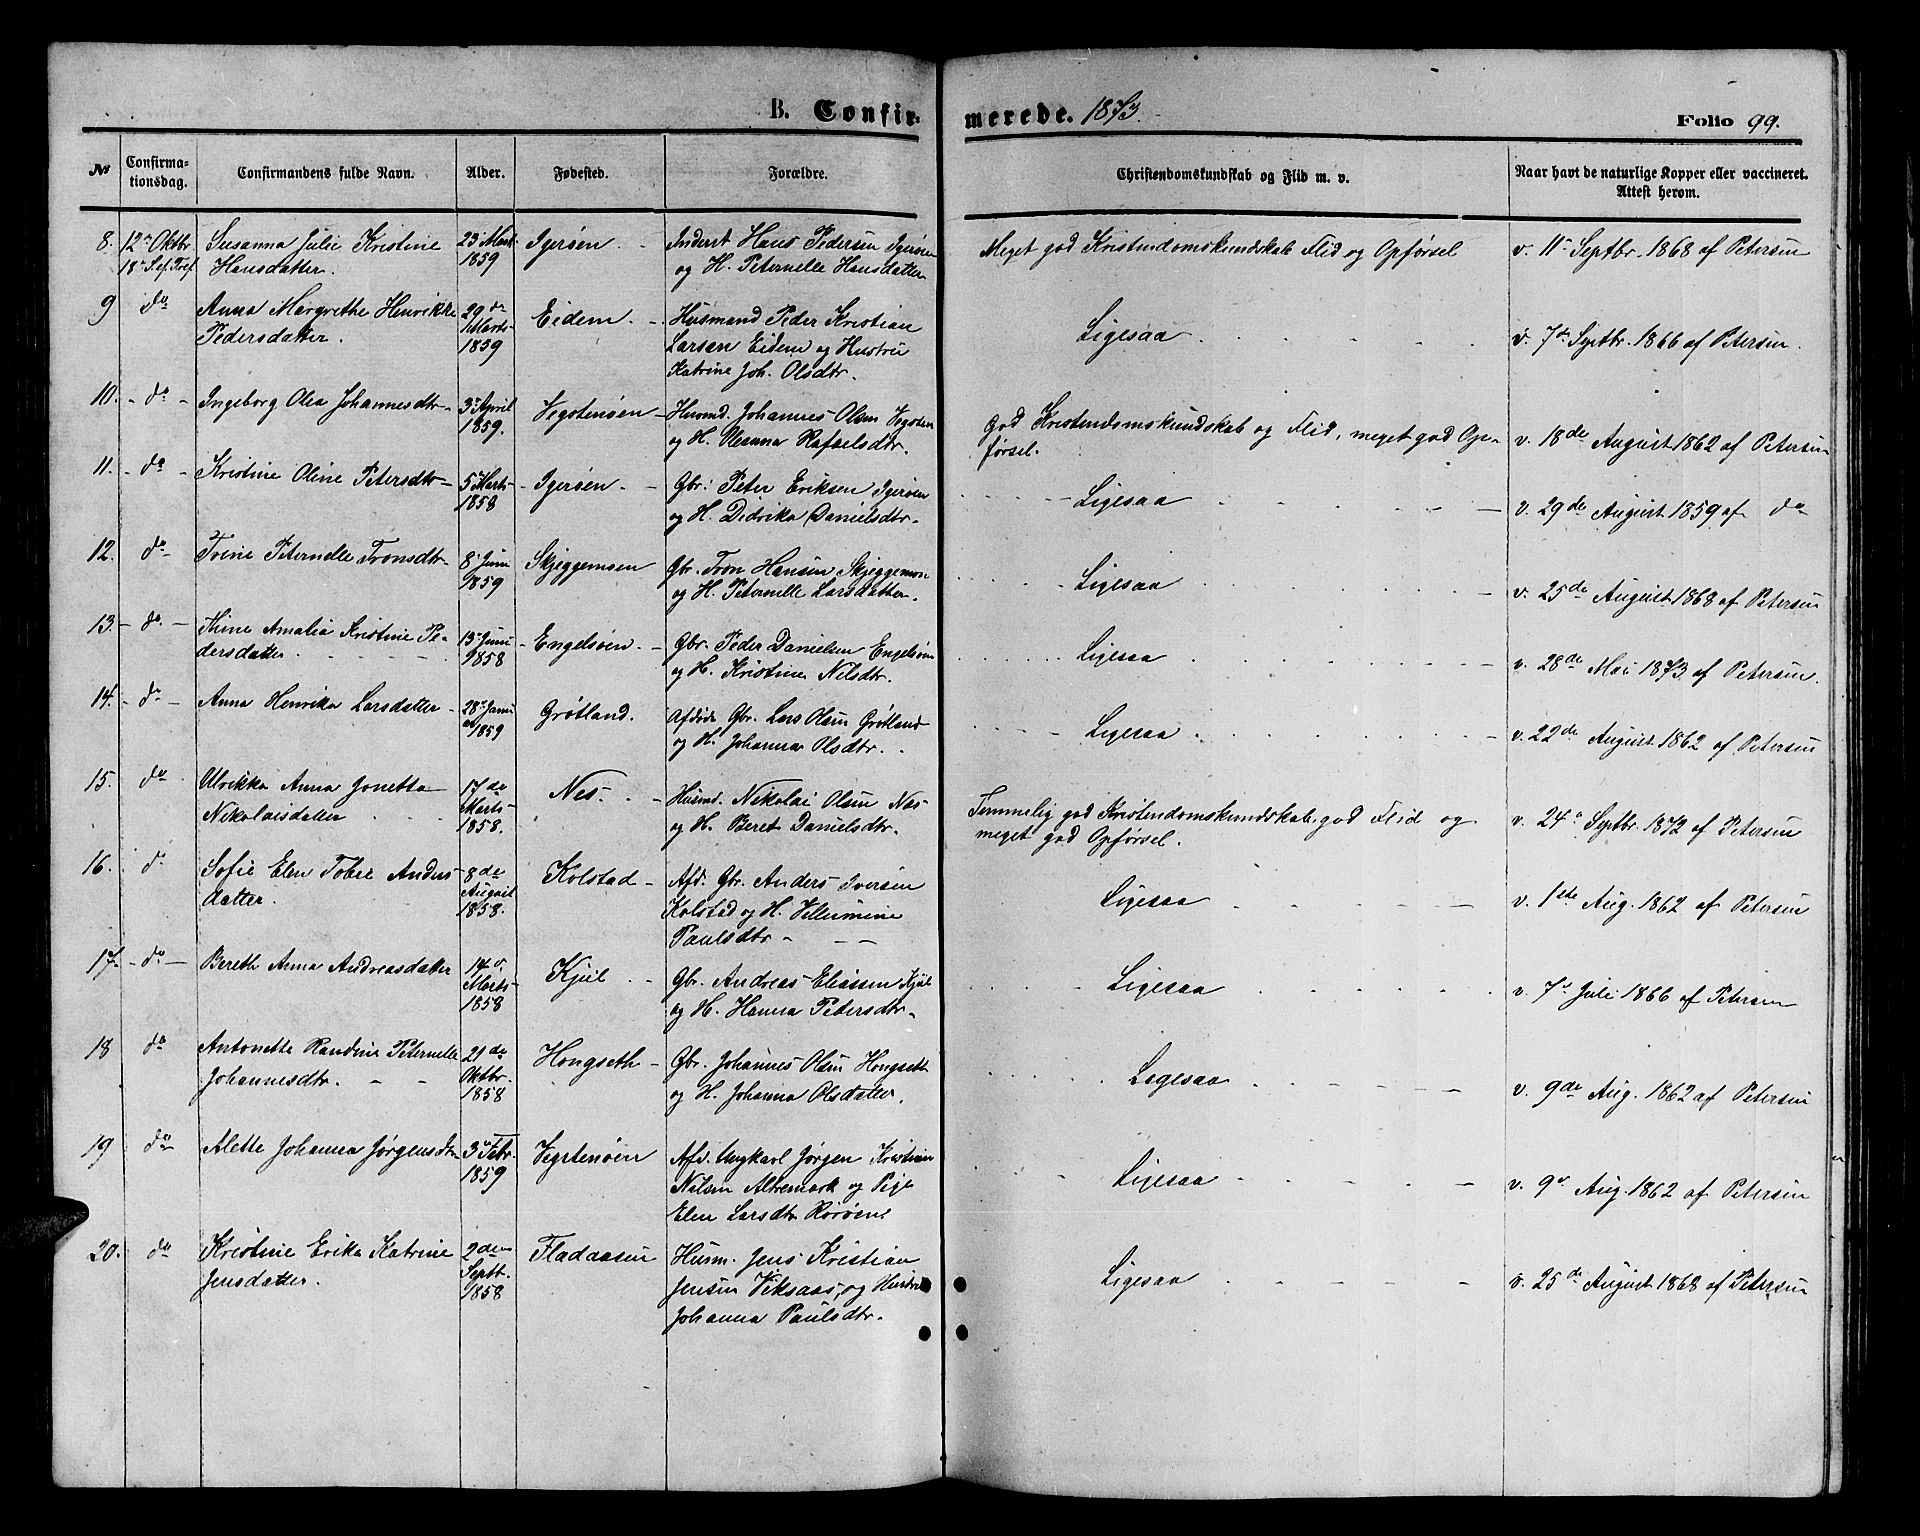 B. Confirmerede. 1873. Folio 99.
№ Confirmationsdag. Confirmandens fulde Navn. Alder. Fødested. Forældre. Christendomskundskab og Flid m. v. Naar havt de naturlige Kopper eller vaccineret. Attest herom.
8. 12te Oktbr. Susanna Julie Kristine 23 Mart Igerøen Inderst Hans Pedersen Igerøen Meget god Kristendomskundskab Flid og Opførsel v. 11te Septbr. 1868 af Petersen
18 S. e. Tref Hansdatter. 1859 og H. Peternelle Hansdatter
9 do Anna Margrethe Henrikke 29de Eidem Husmand Peder Kristian Ligesaa v. 7de Septbr. 1866 af Petersen.
Pedersdatter. Marts 1859 Larsen Eidem og Hustru
Katrine Joh. Olsdtr.
10. do Ingeborg Olea Johannesdtr 3 April Vegstenøen Husmd. Johannes Olsen Vegsten god Kristendomskundskab og Flid, meget god Op- v. 18de August 1862 af Petersen
1859. og H. Olsanna Rafaelsdtr. førsel.
11. do Kristine Oline Petersdtr 5 Marts Igerøen Gbr. Peter Eriksen Igerøen Ligesaa v. 29de August 1859 af do
1858 og H. Didrika Danielsdtr.
12. do Trine Peternelle Tronsdtr 8 Juni Skjeggemsen Gbr. Tron Hansen Skjeggemoen Ligesaa v. 25de August 1868 af Petersen
1859 og H. Peternelle Larsdatter.
13. do Thine Amalia Kristine Pe- 13 Juni Engelsøen Gbr. Peder Danielsen Engelsøen Ligesaa v. 28de Mai 1873 af Petersen.
dersdatter 1858 og H. Kristine Nilsdtr.
14. do Anna Henrika Larsdatter 28 Janu Grøtland. Afdøde Gbr. Lars Olsen Grøtland Ligesaa v. 22de August 1862 af Petersen
ar 1859 og H. Johanna Olsdtr.
15. do Ulrikka Anna Jonetta 17de Nes. Husmd. Nikolai Olsen Nes Temmelig god Kristendomskundskab, god Flid og v. 24 Septbr. 1872 af Petersen
Nikolaisdatter Marts 1858. og H. Beret Danielsdtr. meget god Opførsel.
16. do Sofie Elen Tobie Anders- 8de Kolstad Afd. Gbr. Anders Iversen Ligesaa v. 1ste Aug. 1862 af Petersen
datter. August 1858. Kolstad og H. Villumine
Paulsdtr
17. do Bereth Anna Andreasdatter 14 Kjul Gbr. Andreas Eliassen Kjul Ligesaa v. 7de Juli 1866 af Petersen
Marts 1858 og H. Hanna Pedersdtr.
18 do Antonette Randine Peternelle 21de Hongseth Gbr. Johannes Olsen Hongseth Ligesaa v. 9de Aug. 1862 af Petersen
Johannesdtr. Oktbr. 1858 og H. Johanna Olsdatter.
19 do Alette Johanna Jørgensdtr 3 Febr. Vegstenøen Afd. Ungkarl Jørgen Kristian Ligesaa v. 9 Aug. 1862 af Petersen
1859 Nilsen Altremark og Pige
Elen Larsdtr Rørøen.
20. do Kristine Erika Katrine 2den Fladaasen Husm. Jens Kristian Ligesaa v. 25de August 1868 af Petersen
Jensdatter. Septt. 1858 Jensen Viksaas, og Hustru
Johanna Paulsdtr.